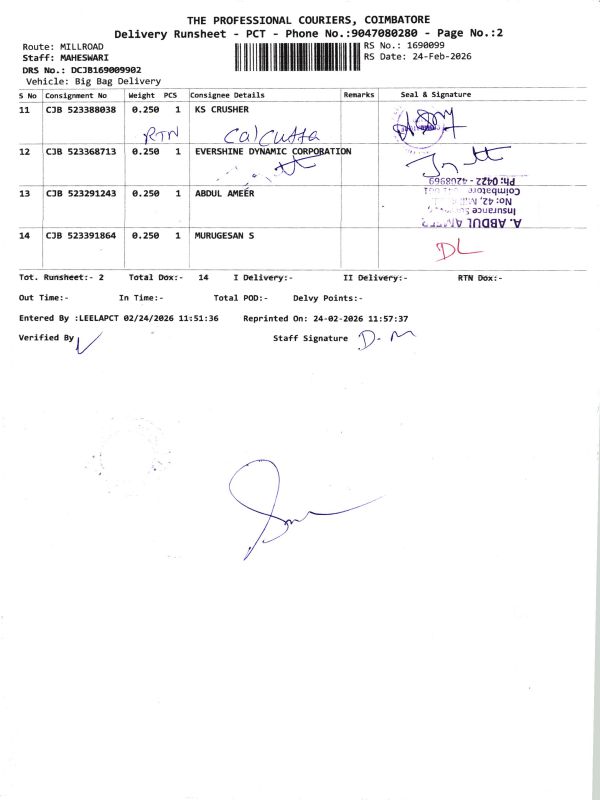 THE PROFESSIONAL COURIERS, COIMBATORE
Delivery Runsheet - PCT - Phone No.:9047080280 - Page No.:2
Route: MILLROAD
RS No.: 1690099
Staff: MAHESWARI
RS Date: 24-Feb-2026
DRS No.: DCJB169009902
Vehicle: Big Bag Delivery
S No Consignment No Weight PCS Consignee Details Remarks Seal & Signature
11 CJB 523388038 0.250 1 KS CRUSHER
RTN Calcutta
12 CJB 523368713 0.250 1 EVERSHINE DYNAMIC CORPORATION
13 CJB 523291243 0.250 1 ABDUL AMEER
A. ABDUL AMEER
Insurance
No: 42, Mill
Coimbatore
Ph: 0422 - 4208969
14 CJB 523391864 0.250 1 MURUGESAN S
DL
Tot. Runsheet:- 2 Total Dox:- 14 I Delivery:- II Delivery:- RTN Dox:-
Out Time:- In Time:- Total POD:- Delvy Points:-
Entered By :LEELAPCT 02/24/2026 11:51:36 Reprinted On: 24-02-2026 11:57:37
Verified By Staff Signature D. M